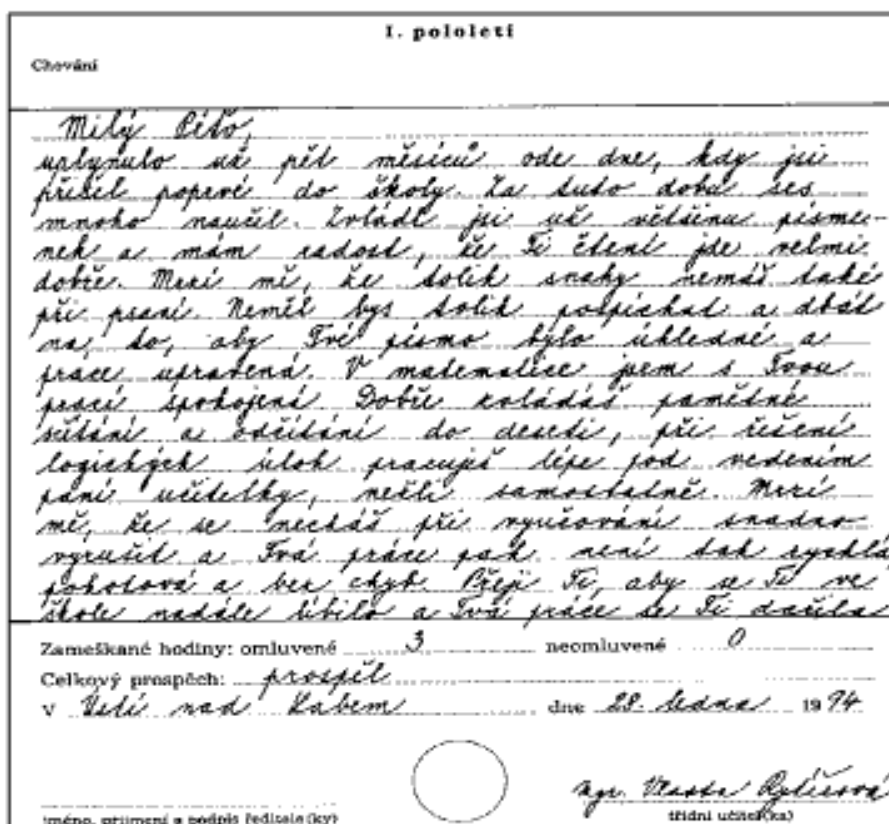 I. pololetí
Chování
Milý Péťo,
uplynulo už pět měsíců ode dne, kdy jsi
přišel poprvé do školy. Za tuto dobu ses
mnoho naučil. Zvládl jsi už většinu písme-
nek a mám radost, že Ti čtení jde velmi
dobře. Mrzí mě, že tolik snahy nemáš také
při psaní. Neměl bys tolik pospíchat a dbát
na to, aby Tvé písmo bylo úhledné a
práce upravená. V matematice jsem s Tvou
prací spokojená. Dobře zvládáš pamětné
sčítání a odčítání do deseti, při řešení
logických úloh pracuješ lépe pod vedením
paní učitelky, nežli samostatně. Mrzí
mě, že se necháš při vyučování snadno
vyrušit a Tvá práce pak není tak rychlá,
pohotová a bez chyb. Přeji Ti, aby se Ti ve
škole nadále líbilo a Tvá práce se Ti dařila
Zameškané hodiny: omluvené 3 neomluvené 0
Celkový prospěch: prospěl
V Ústí nad Labem dne 28. ledna 1994
Mgr. Vlasta
jméno, příjmení a podpis ředitele(ky) třídní učitel(ka)